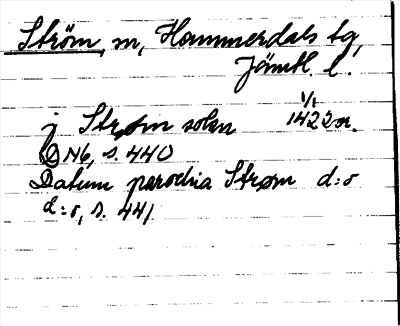 Ström, m, Hammerdals tg,
Jämtl. l.
j Strøm sokn 1/1 1422 or.
DN6, s. 440
Datum parochia Strøm d:o
d:o, s. 441